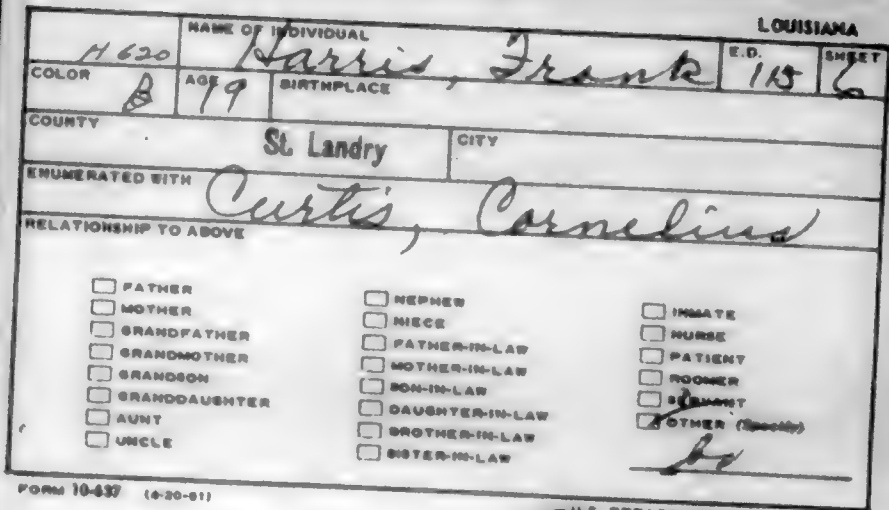 LOUISIANA
NAME OF INDIVIDUAL E.D. SHEET
H 620 Harris, Frank 115 6
COLOR B AGE 19 BIRTHPLACE
COUNTY St. Landry CITY
ENUMERATED WITH Curtis, Cornelius
RELATIONSHIP TO ABOVE
FATHER
MOTHER
GRANDFATHER
GRANDMOTHER
GRANDSON
GRANDDAUGHTER
AUNT
UNCLE
NEPHEW
NIECE
FATHER-IN-LAW
MOTHER-IN-LAW
SON-IN-LAW
DAUGHTER-IN-LAW
BROTHER-IN-LAW
SISTER-IN-LAW
INMATE
NURSE
PATIENT
ROOMER
SERVANT
OTHER (Specify)
bo
FORM 10-637 (4-20-61)